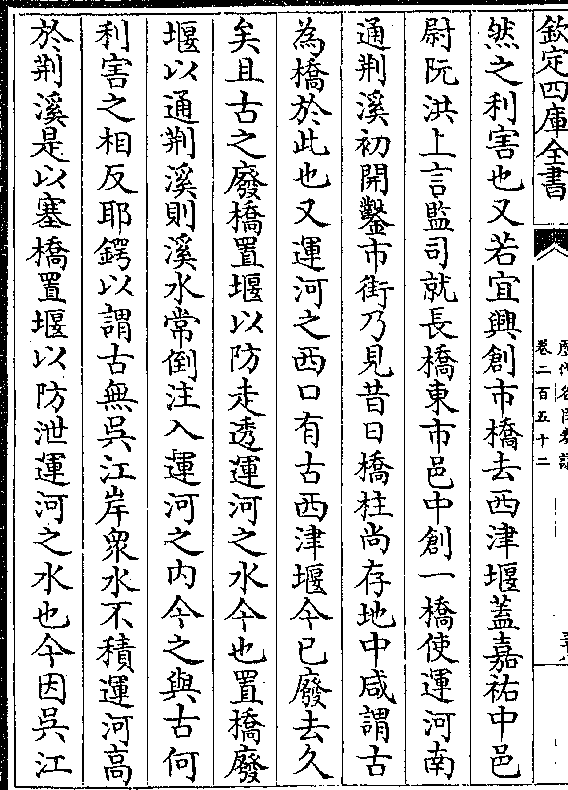 欽定四庫全書
卷二百五十二
然之利害也又若宜興創市橋去西津堰蓋嘉祐中邑
尉阮洪上言監司就長橋東市邑中創一橋使運河南
通荆溪初開鑿市街乃見昔日橋柱尚存地中咸謂古
為橋於此也又運河之西口有古西津堰今已廢去久
矣且古之廢橋置堰以防走透運河之水今也置橋廢
堰以通荆溪則溪水常倒注入運河之内今之與古何
利害之相反耶鍔以謂古無吳江岸衆水不積運河高
於荆溪是以塞橋置堰以防泄運河之水也今因吳江